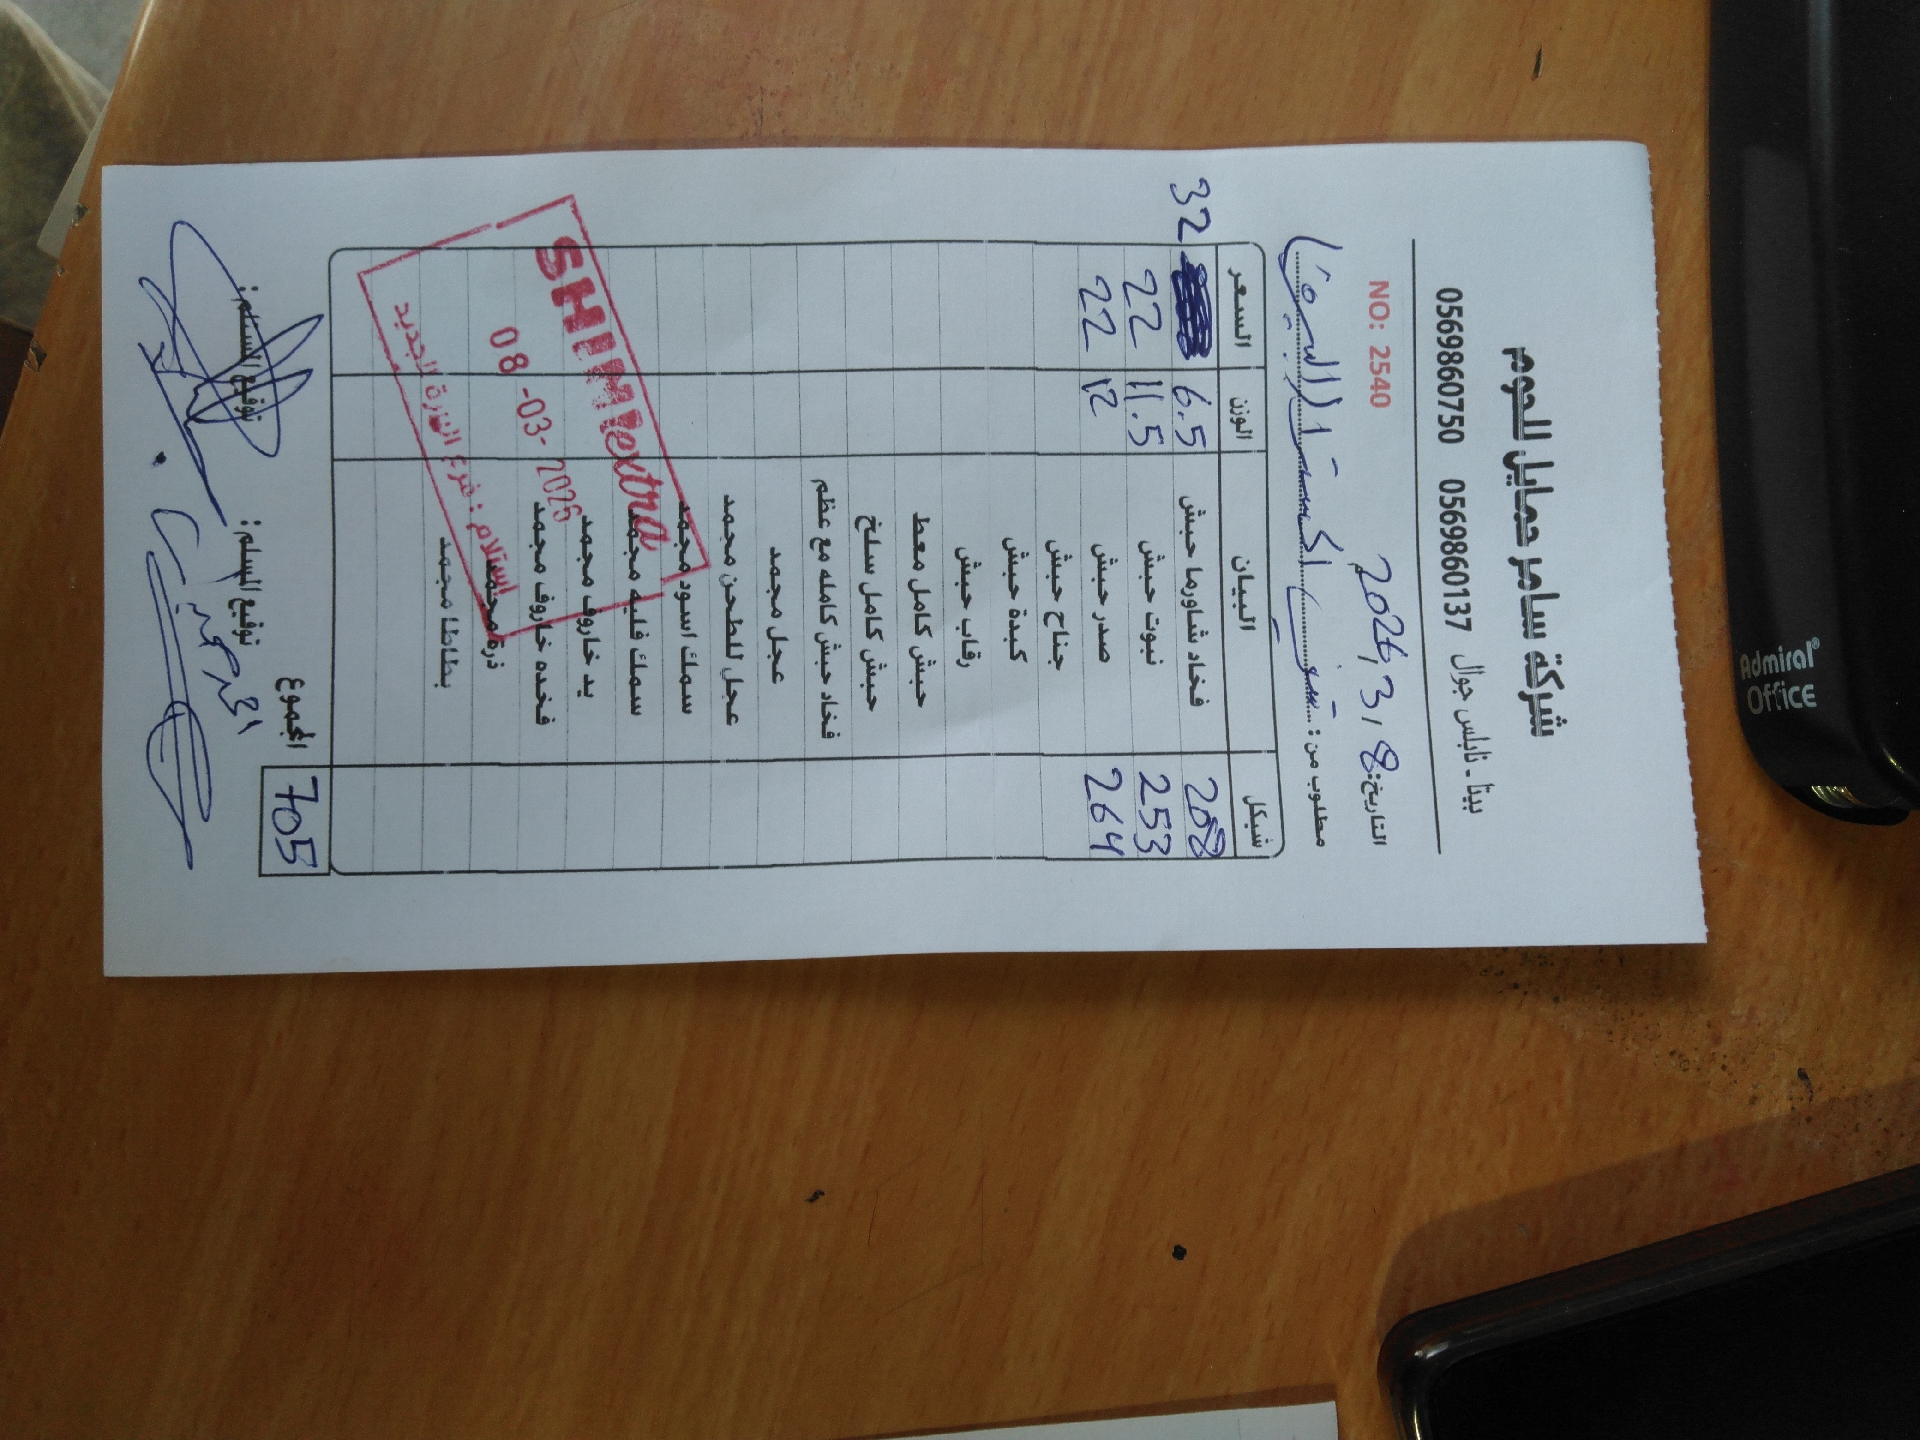 شركة سامر حمايل للحوم
بيتا - نابلس جوال 0569860137 0569860750
التاريخ: 8 / 3 / 2026 NO: 2540
مطلوب من: شيني اكسترا البيره
شيكل البيان الوزن السعر
208 فخاد شاورما حبش 6.5 32
253 نبوت حبش 11.5 22
264 صدر حبش 12 22
جناح حبش
كبدة حبش
رقاب حبش
حبش كامل معط
حبش كامل سلخ
فخاد حبش كامله مع عظم
عجل مجمد
عجل للطحن مجمد
سمك اسود مجمد
سمك فليه مجمد
يد خاروف مجمد
فخده خاروف مجمد
ذرة مجمد
بطاطا مجمد
SHINI extra
08-03-2026
استلام : فرع البيرة الجديد
705 المجموع
توقيع المسلم: توقيع المستلم:
Admiral®
Office